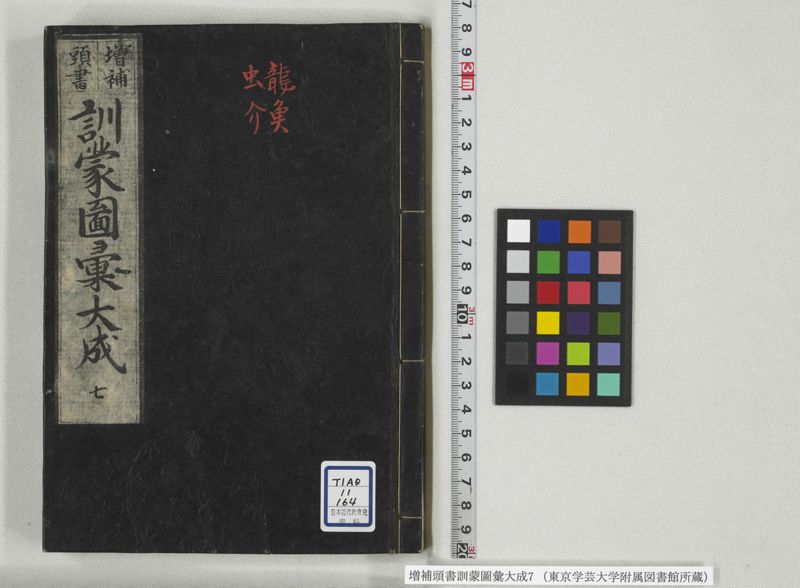 増補
頭書
訓蒙圖彙大成
七
龍魚
虫介
T1A0
11
164
日本近代教育史
資料
増補頭書訓蒙圖彙大成7 (東京学芸大学附属図書館所蔵)
7
8
9
3m
1
2
3
4
5
6
7
8
9
10
3m
1
2
3
4
5
6
7
8
9
20